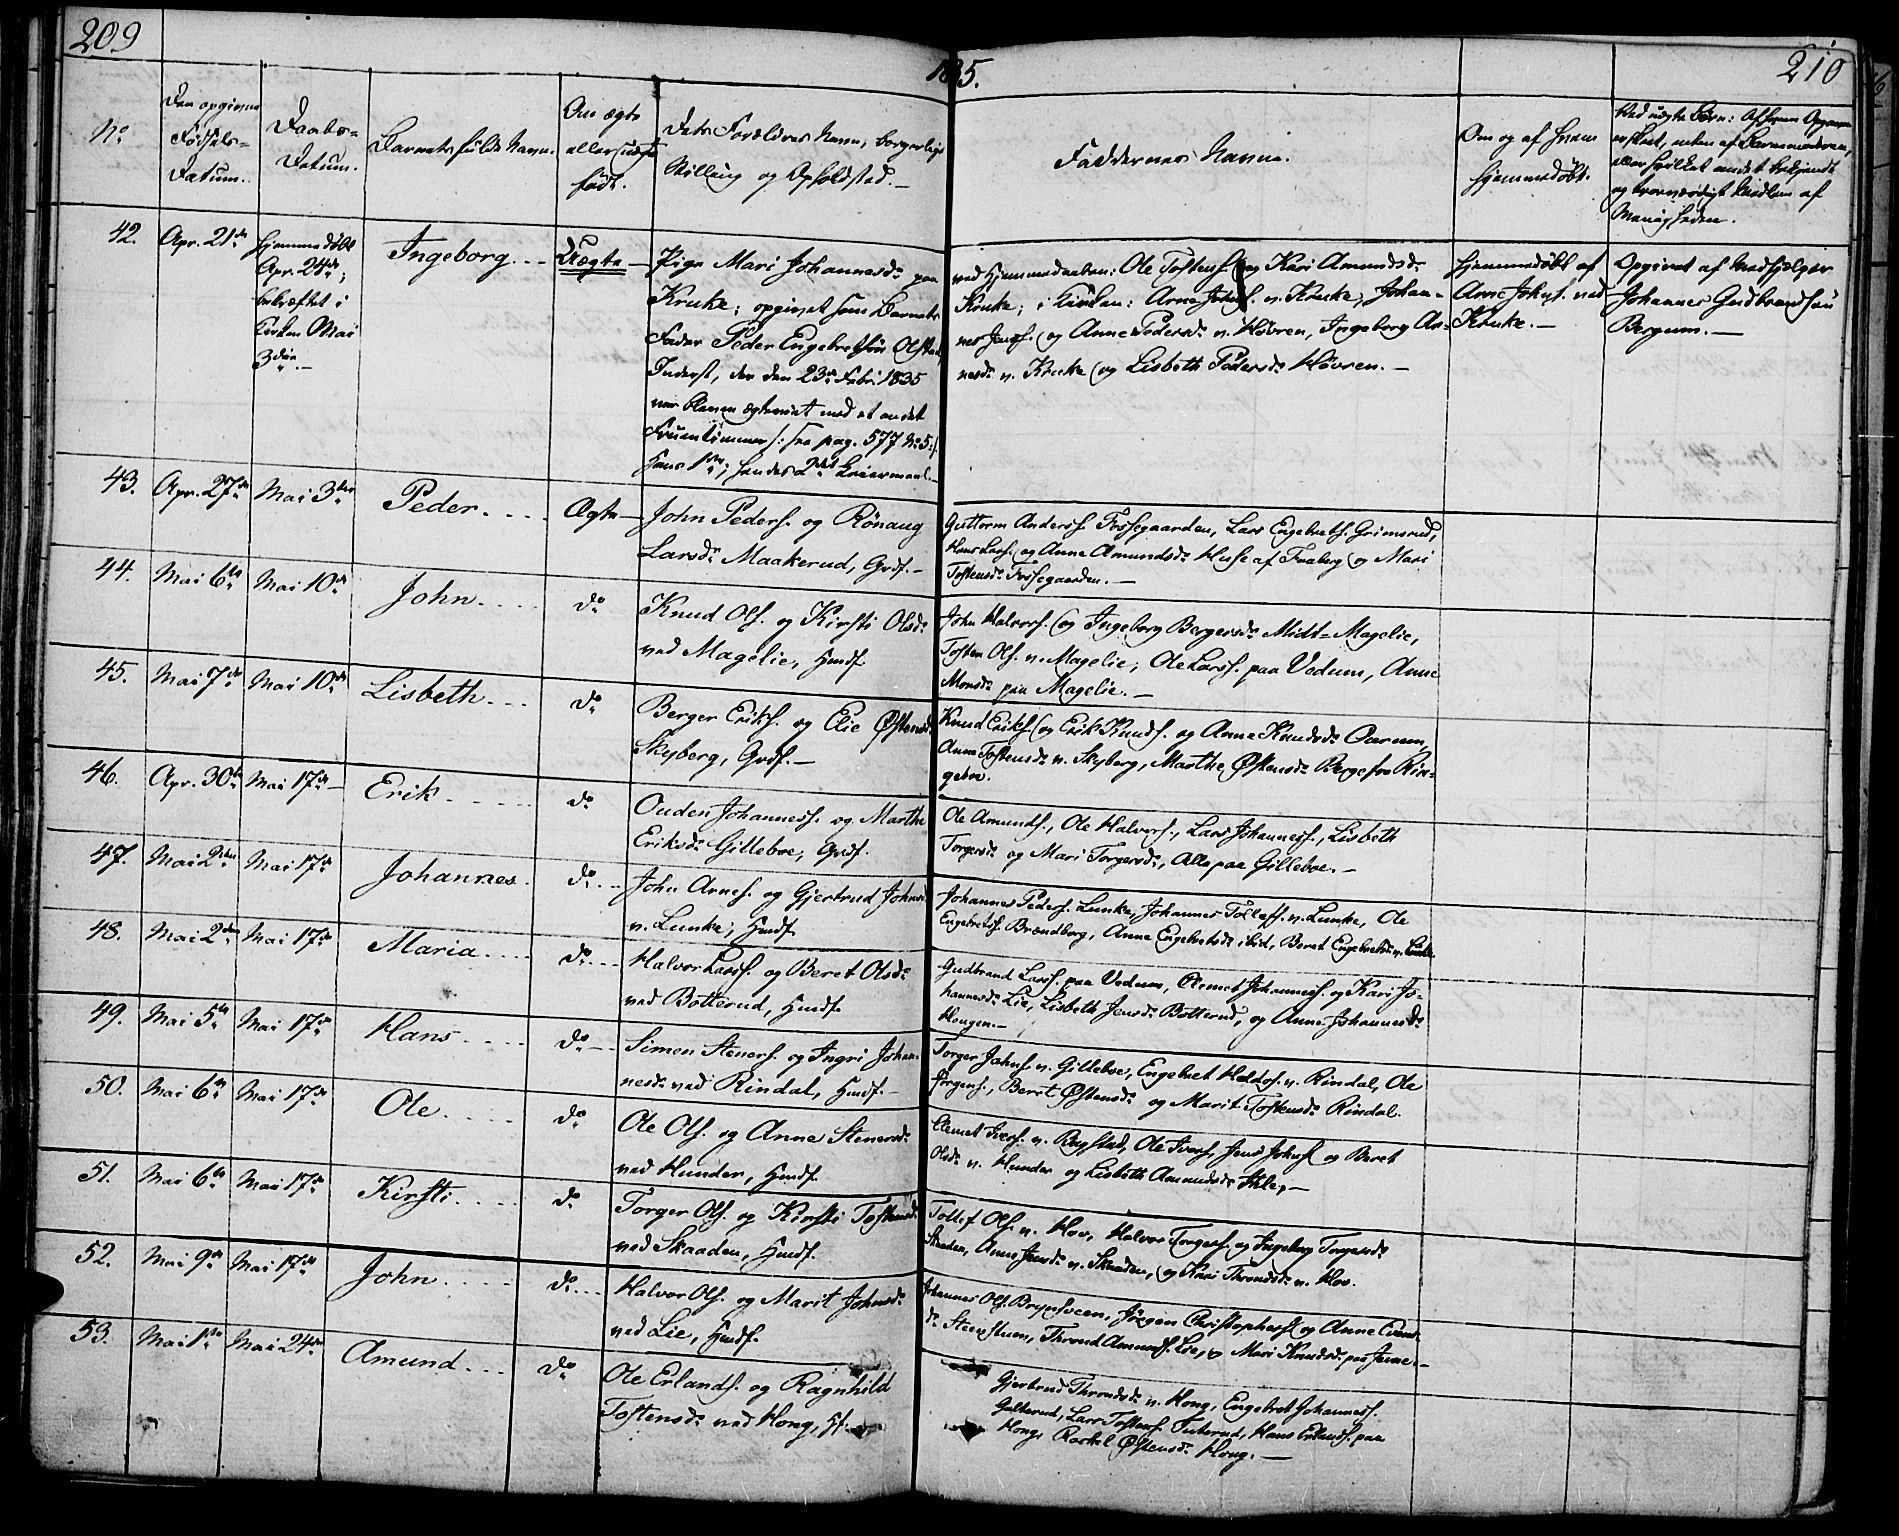 209
1835.
210
No
Den opgivne Fødsels-Datum.
Daabs-Datum.
Barnets fulde Navn.
Om ægte eller uægte født.
Dets Forældres Navn, borgerlige Stilling og Opholdsted.
Faddernes Navne.
Om og af hvem hjemmedøbt.
Ved uægte Børn: Af hvem Opgivelsen er skeet, enten af Barnemoderen, eller hvilket andet bekjendt og troværdigt Medlem af Menigheden.
42.
Apr. 21de
Hjemmedøbt
Apr. 24de;
bekræftet i
Kirken Mai
3die.
Ingeborg
Uægte
Pige Mari Johannesdr paa
Kruke; opgivet som Barnets
Fader Peder Engebretsøn Olstad,
Inderst, der den 23de Febr. 1835
med et andet
Fruentimmer /: see pag. 577 No 5:/
Hans 1ste; hendes 2det Leiermaal.
ved Hjemmedaaben: Ole Tostens. og Kari Amundsdr
Kruke; i Kirken: Arne Johns. v. Kruke, Johan-
nes Jens. og Anne Pedersdr v. Høvren, Ingeborg Ar-
nesdr v. Kruke og Lisbeth Pedersdr Høvren.
Hjemmedøbt af
Arne Johns. ved
Kruke.
Opgivet af Medhjelper
Johannes Gudbrandsøn
Bergum.
43.
Apr. 27de
Mai 3die
Peder
Ægte
John Peders. og Rönaug
Larsdr Maakerud, Grdf.
Guttorm Anders. Fossegaarden, Lars Engebrets. Grimsrud,
Hans Lars. og Anne Amundsdr Huse af Faaberg og Mari
Tostensdr Fossegaarden.
44.
Mai 6te
Mai 10de
John
do
Knud Ols. og Kirsti Olsdr
ved Magelie, Hmdf.
John Halvors. og Ingeborg Bergersdr Midt-Magelie,
Tosten Ols. v. Magelie, Ole Lars. paa Vedum, Anne
Monsdr paa Magelie.
45.
Mai 7de
Mai 10de
Lisbeth
do
Berger Eriks. og Elie Østensdr
Skyberg, Grdf.
Knud Eriks. og Erik Knuds. og Anne Knudsdr Aarum,
Anne Tostensdr v. Skyberg, Marthe Østensdr Berge fra Rin-
geboe.
46.
Apr. 30te
Mai 17de
Erik
do
Ouden Johanness. og Marthe
Eriksdr Gilleboe, Grdf.
Ole Amunds., Ole Halvors., Lars Johanness., Lisbeth
Torgersdr og Mari Torgersdr, Alle paa Gilleboe.
47.
Mai 2den
Mai 17de
Johannes
do
John Arnes. og Gjertrud Johnsdr
v. Lunke, Hmdf.
Johannes Peders. Lunke, Johannes Tollefs. v. Lunke, Ole
Engebrets. Brændborg, Anne Engebretsdr ibid, Beret Engebretsdr v. Lunke.
48.
Mai 2den
Mai 17de
Maria
do
Halvor Lars. og Beret Olsdr
ved Botterud, Hmdf.
Gudbrand Lars. paa Vedum, Clemet Johanness. og Kari Jo-
hannesdr Lie, Lisbeth Jensdr Botterud, og Anne Johannesdr
Haugen.
49.
Mai 5te
Mai 17de
Hans
do
Simen Steners. og Ingri Johan-
nesdr ved Rindal, Hmdf.
Torger Johns. v. Gilleboe, Engebret Halvors. v. Rindal, Ole
Jörgens., Beret Østensdr og Marit Tostensdr Rindal.
50.
Mai 6te
Mai 17de
Ole
do
Ole Ols. og Anne Stenersdr
ved Hunder, Hmdf.
Clemet Ivers. v. Rogstad, Ole Ivers., Jens Johns. og Beret
Olsdr v. Hunder og Lisbeth Amundsdr
51.
Mai 6te
Mai 17de
Kirsti
do
Torger Ols. og Kirsti Tostensdr
ved Skaaden, Hmdf.
Tollef Ols. v. Hov, Halvor Torgers. og Ingeborg Torgersdr
Skaaden, Anne Jensdr v. Skaaden, og Kari Throndsdr v. Hov.
52.
Mai 9de
Mai 17de
John
do
Halvor Ols. og Marit Johnsdr
ved Lie, Hmdf.
Johannes Ols. Brynsveen, Jörgen Christophers. og Anne
Thrond Amunds. Lie, og Mari Knudsdr paa
53.
Mai 1ste
Mai 24de
Amund
do
Ole Erlands. og Ragnhild
Tostensdr ved Hong, H
Gjertrud Throndsdr v. Hong, Engebret Johanness.
Gulterud, Lars Tostens. Hans Erlands. paa
Hong, Rachel Østensdr Hong.